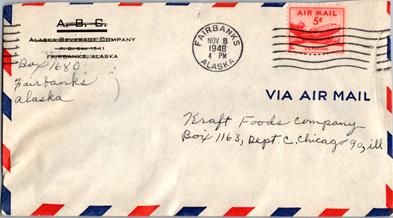 A. B. C.
ALASKA BEVERAGE COMPANY
P. O. Box 1541
FAIRBANKS, ALASKA
Box 1680
Fairbanks
Alaska
FAIRBANKS
NOV 8
4 PM
1948
ALASKA
AIR MAIL
5¢
VIA AIR MAIL
Kraft Foods Company
Box 1163, Dept. C, Chicago 90, ill